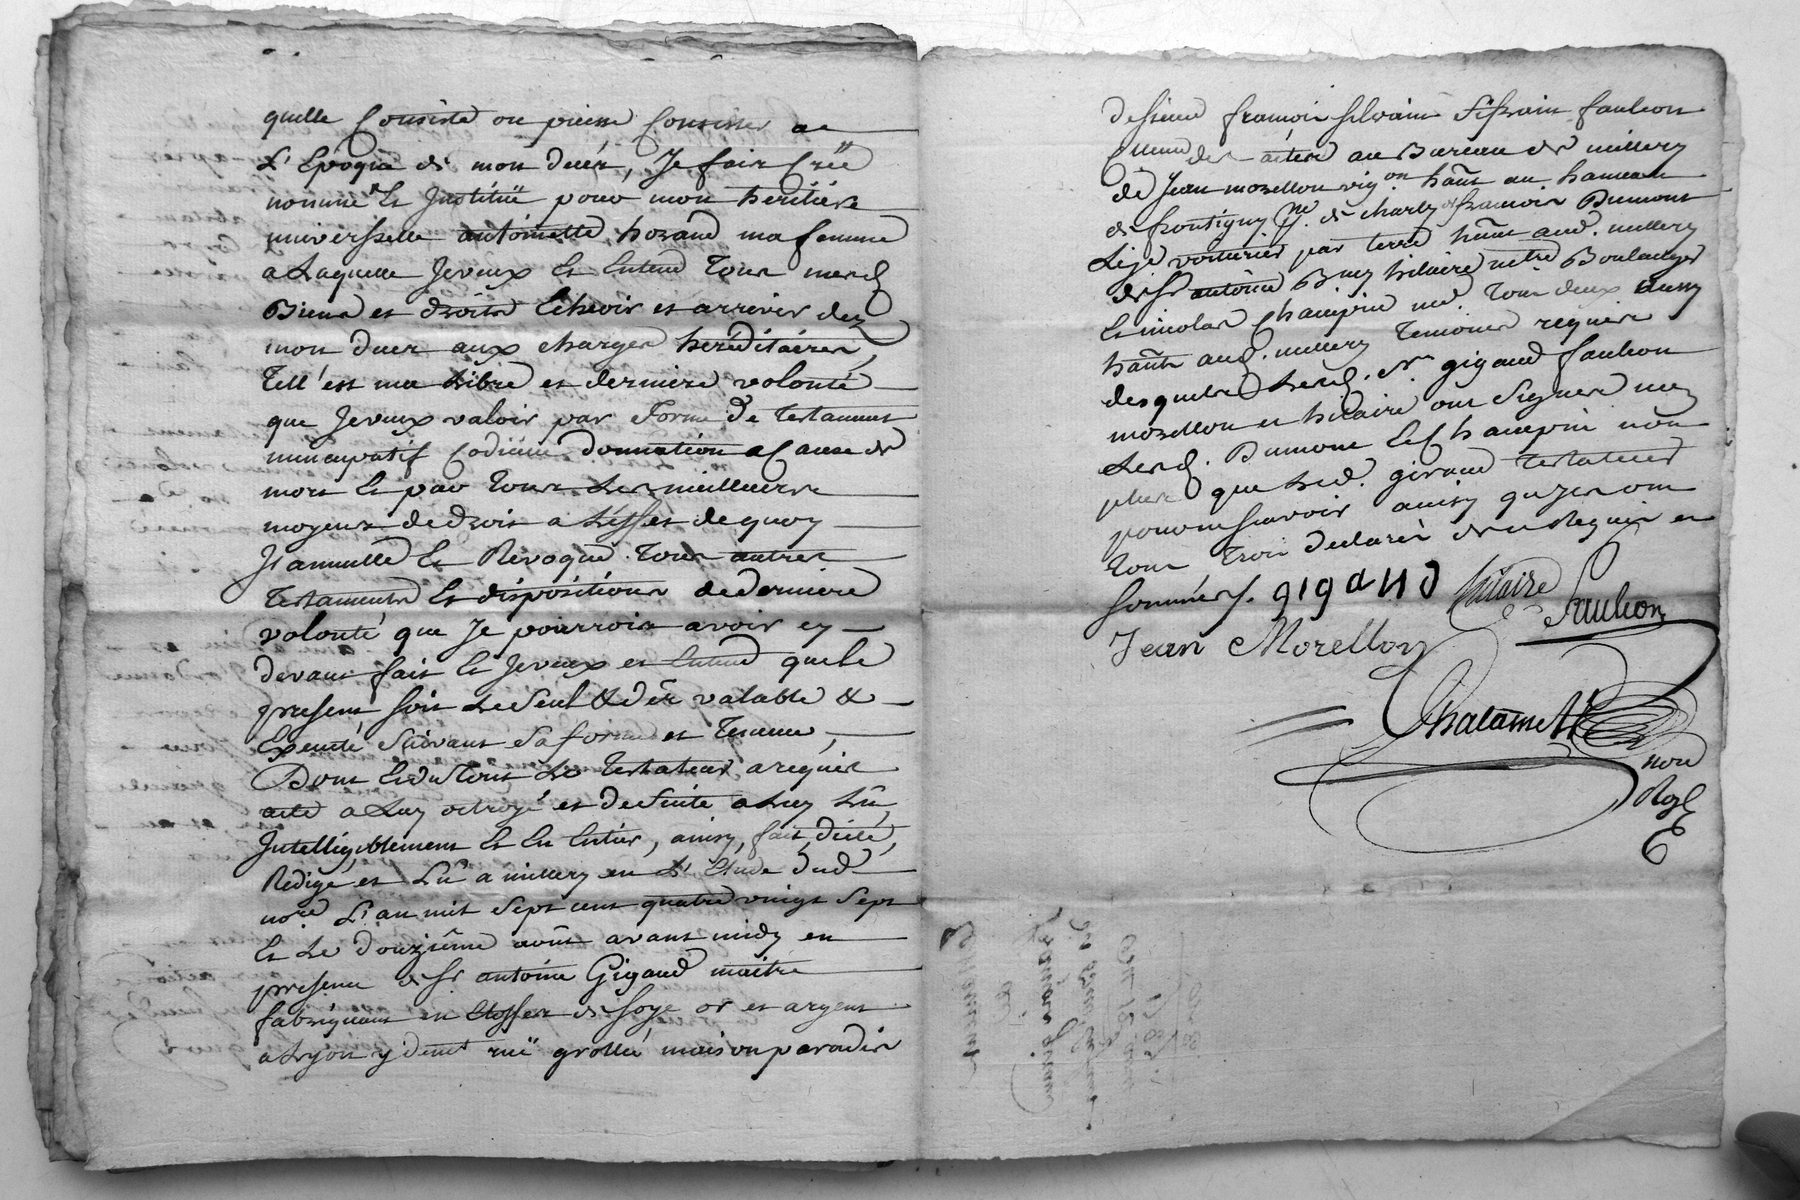 quelle Consiste ou puisse Consister a
L'Epoque de mon decès, Je fais Créé
nomme Et Institüe pour mon heritiére
universselle antoinette hozand ma femme
a Laquelle Jeveux Et Entend Tous mesd
Biens et droits Echeoir et arriver dez
mon deces aux charges heréditaires,
Tell'est ma Libre et derniere volonté
que Jeveux valoir par Forme de Testament
nuncupatif Codicille donnation a Cause de
mort Et par Tous Les meilleurs
moyens dedroit a L'effet dequoy
J'annulle Et Revoque Tous autres
Testaments Et dispositions dederniere
volonté que Je pourrois avoir cy
devant fait Et Jeveux et Entend quele
present soit LeSeul & valable &
Executé Suivant Saforme et Teneur,
Dont Etdu Tout Le Testateur arequis
acte a Luy octroyé et deSuite a Luy Lû
Intelligiblement Et En Entier, ainsy, fait, dicté,
Redigé et Lû a millery en L'Etude dud
nore L'an mil Sept cent quatre vingt Sept
Et Le douzième août avant midy en
presence de Sr antoine Gigaud maitre
fabriquant en Etoffes de Soye or et argent
a Lyon y demt ruë grollée maison paradis
deSieur françois Silvain Faulcon
Commis des actes au Bureau de millery
de Jean morellon vigon hant au hameau
de frontigny psse de charly de françois Dumont
Léjé voiturier par terre hant aud. millery
de Sr antoine Hilaire me Boulanger
Et nicolas Champin Tous deux aussy
hants aud. millery Temoins requis
desquels Lesd. Sr gigaud faulcon
morellon et hilaire ont Signés
Lesd. Dumont Et Champin non
plus que Led. giraud Testateur
pouvoir Scavoir ainsy qu'ils ont
Tous Trois declarés de ce Requis et
Sommés /. gigaud hilaire Faulcon
Jean Morellon
Chalamett
nore
Royl